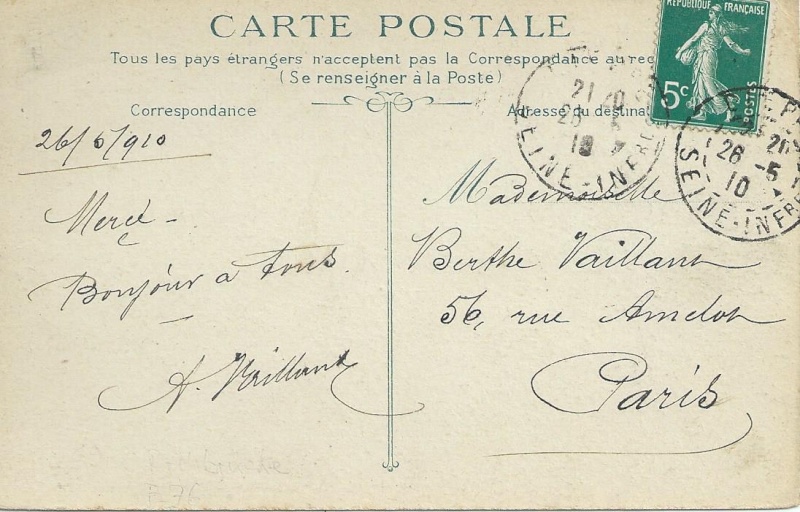 CARTE POSTALE
Tous les pays étrangers n'acceptent pas la Correspondance au rec
(Se renseigner à la Poste)
Correspondance
Adresse du destinat
RÉPUBLIQUE FRANÇAISE
5c
POSTES
21
SEINE-INFRE
26 -5
10
SEINE-INFRE
26/5/910
Merci -
Bonjour à tous.
A. Vaillant
Mademoiselle
Berthe Vaillant
56, rue Amelot
Paris